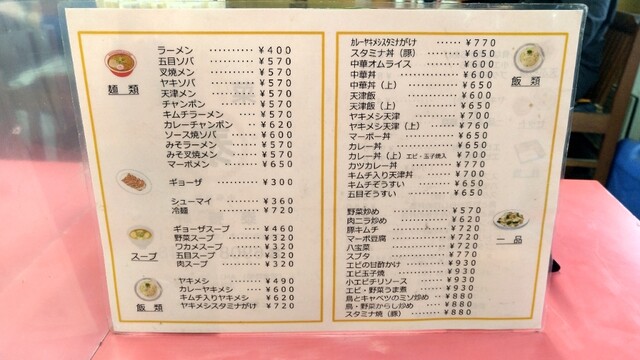 ラーメン ………… ¥400
五目ソバ ………… ¥570
叉焼メン ………… ¥570
ヤキソバ ………… ¥570
天津メン ………… ¥570
チャンポン ……… ¥570
キムチラーメン …… ¥570
カレーチャンポン … ¥620
ソース焼ソバ …… ¥600
みそラーメン …… ¥570
みそ叉焼メン …… ¥570
マーボメン ……… ¥650
麺類
ギョーザ ………… ¥300
シューマイ ……… ¥360
冷麺 ……………… ¥720
ギョーザスープ …… ¥460
野菜スープ ……… ¥320
ワカメスープ …… ¥320
五目スープ ……… ¥320
肉スープ ………… ¥320
スープ
ヤキメシ ………… ¥490
カレーヤキメシ …… ¥600
キムチ入りヤキメシ … ¥620
ヤキメシスタミナがけ … ¥720
飯類
カレーヤキメシスタミナがけ … ¥770
スタミナ丼（豚） …… ¥650
中華オムライス …… ¥600
中華丼 …………… ¥600
中華丼（上） ……… ¥650
天津飯 …………… ¥600
天津飯（上） ……… ¥650
ヤキメシ天津 …… ¥700
ヤキメシ天津（上） … ¥760
マーボー丼 ……… ¥650
カレー丼 ………… ¥650
カレー丼（上）エビ・玉子焼入 ¥700
カツカレー丼 …… ¥770
キムチ入り天津丼 … ¥700
キムチぞうすい …… ¥650
五目ぞうすい …… ¥650
飯類
野菜炒め ………… ¥570
肉ニラ炒め ……… ¥620
豚キムチ ………… ¥720
マーボ豆腐 ……… ¥720
八宝菜 …………… ¥720
スブタ …………… ¥770
エビの甘酢かけ …… ¥930
エビ玉子焼 ……… ¥930
小エビチリソース … ¥930
エビ・野菜うま煮 … ¥930
鳥とキャベツのミソ炒め … ¥880
鳥・野菜からし炒め … ¥880
スタミナ焼（豚） …… ¥880
一品